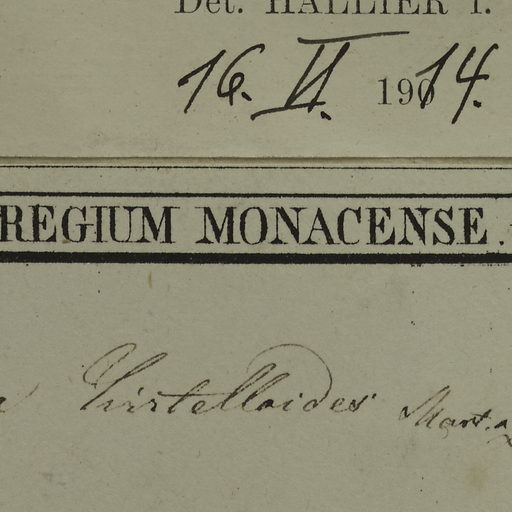 Det. HALLIER f.
16. II. 1914.
REGIUM MONACENSE.
Hirtelloides Mart.